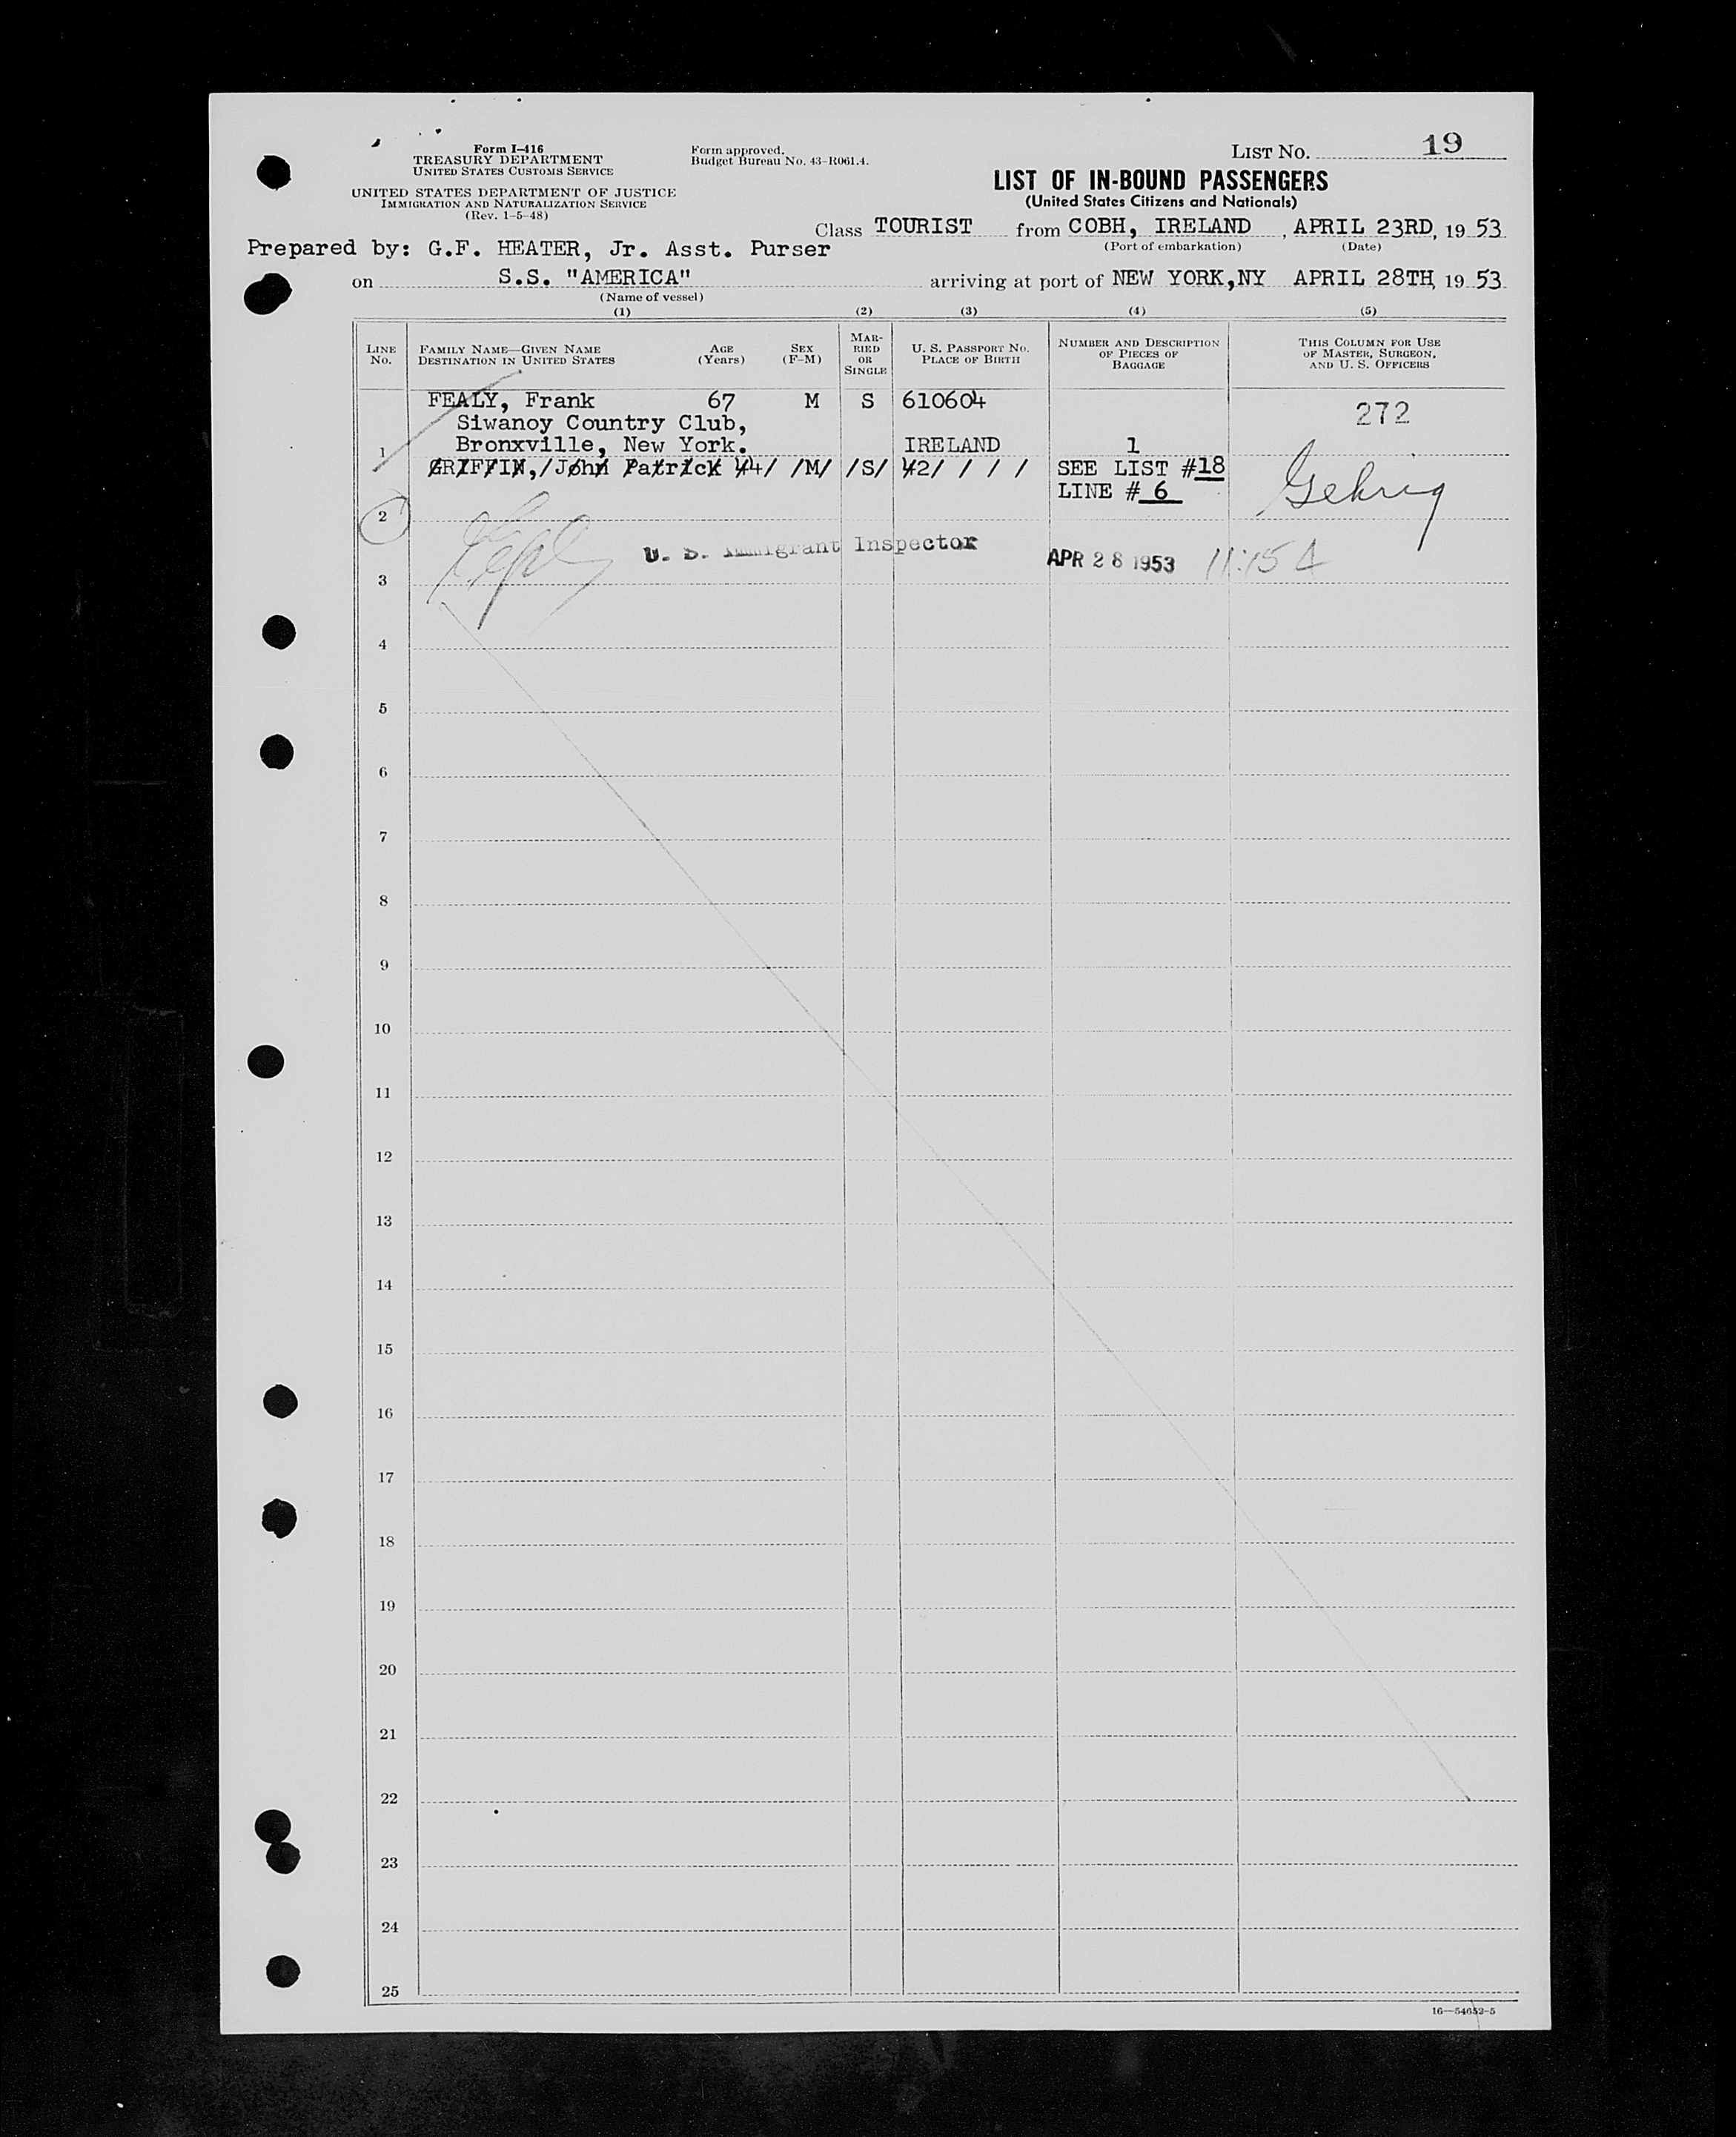 Form I-416
TREASURY DEPARTMENT
UNITED STATES CUSTOMS SERVICE
UNITED STATES DEPARTMENT OF JUSTICE
IMMIGRATION AND NATURALIZATION SERVICE
(Rev. 1-5-48)
Form approved.
Budget Bureau No. 43-R061.4.
LIST NO. 19
LIST OF IN-BOUND PASSENGERS
(United States Citizens and Nationals)
Class TOURIST from COBH, IRELAND, APRIL 23RD, 1953
(Port of embarkation) (Date)
Prepared by: G.F. HEATER, Jr. Asst. Purser
on S.S. "AMERICA" arriving at port of NEW YORK,NY APRIL 28TH, 1953
(Name of vessel)
(1) (2) (3) (4) (5)
LINE NO.
FAMILY NAME—GIVEN NAME
DESTINATION IN UNITED STATES
AGE
(Years)
SEX
(F-M)
MAR-
RIED
OR
SINGLE
U. S. PASSPORT NO.
PLACE OF BIRTH
NUMBER AND DESCRIPTION
OF PIECES OF
BAGGAGE
THIS COLUMN FOR USE
OF MASTER, SURGEON,
AND U. S. OFFICERS
FEALY, Frank 67 M S 610604
272
Siwanoy Country Club,
1 Bronxville, New York. IRELAND 1
GRIFFIN, John Patrick 44 M S 42 SEE LIST #18
LINE # 6
Gehrig
2
U. S. Immigrant Inspector APR 28 1953 11:15 A
3
4
5
6
7
8
9
10
11
12
13
14
15
16
17
18
19
20
21
22
23
24
25
16—54652-5